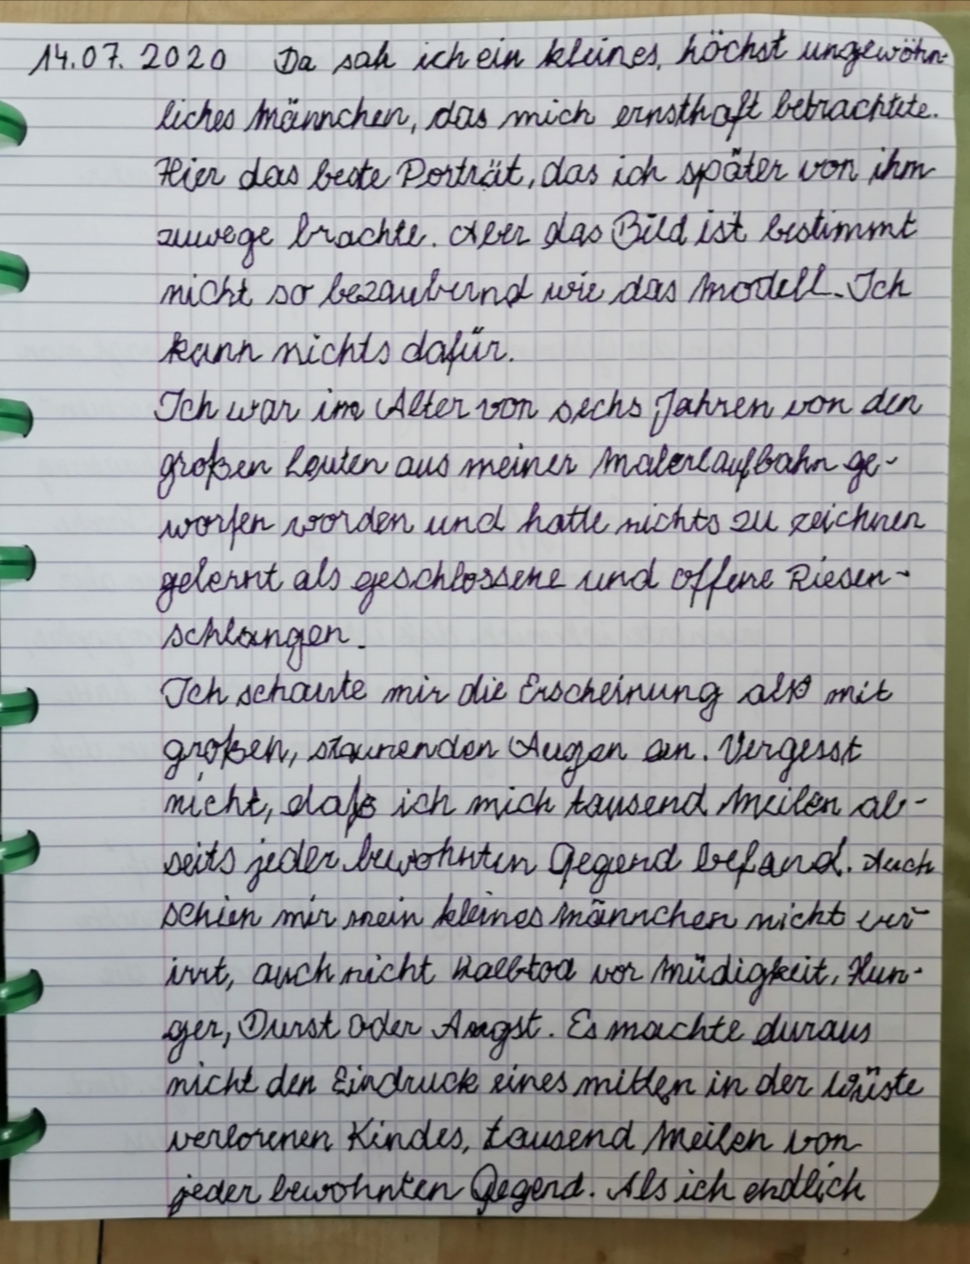 14.07.2020 Da sah ich ein kleines, höchst ungewöhn-
liches Männchen, das mich ernsthaft betrachtete.
Hier das beste Porträt, das ich später von ihm
zuwege brachte. Aber das Bild ist bestimmt
nicht so bezaubernd wie das Modell. Ich
kann nichts dafür.
Ich war im Alter von sechs Jahren von den
großen Leuten aus meiner Malerlaufbahn ge-
worfen worden und hatte nichts zu zeichnen
gelernt als geschlossene und offene Riesen-
schlangen.
Ich schaute mir die Erscheinung also mit
großen, staunenden Augen an. Vergesst
nicht, daß ich mich tausend Meilen ab-
seits jeder bewohnten Gegend befand. Auch
schien mir mein kleines Männchen nicht ver-
irrt, auch nicht halbtod vor Müdigkeit, Hun-
ger, Durst oder Angst. Es machte duraus
nicht den Eindruck eines mitten in der Wüste
verlorenen Kindes, tausend Meilen von
jeder bewohnten Gegend. Als ich endlich